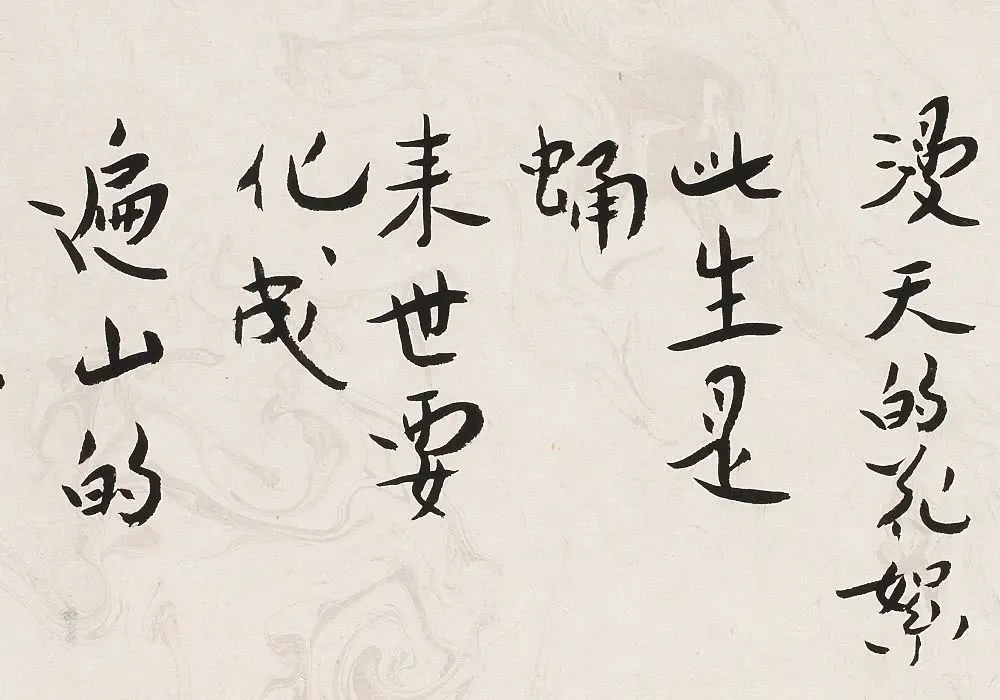 漫天的花絮
此生是
蛹
来世要
化成
遍山的